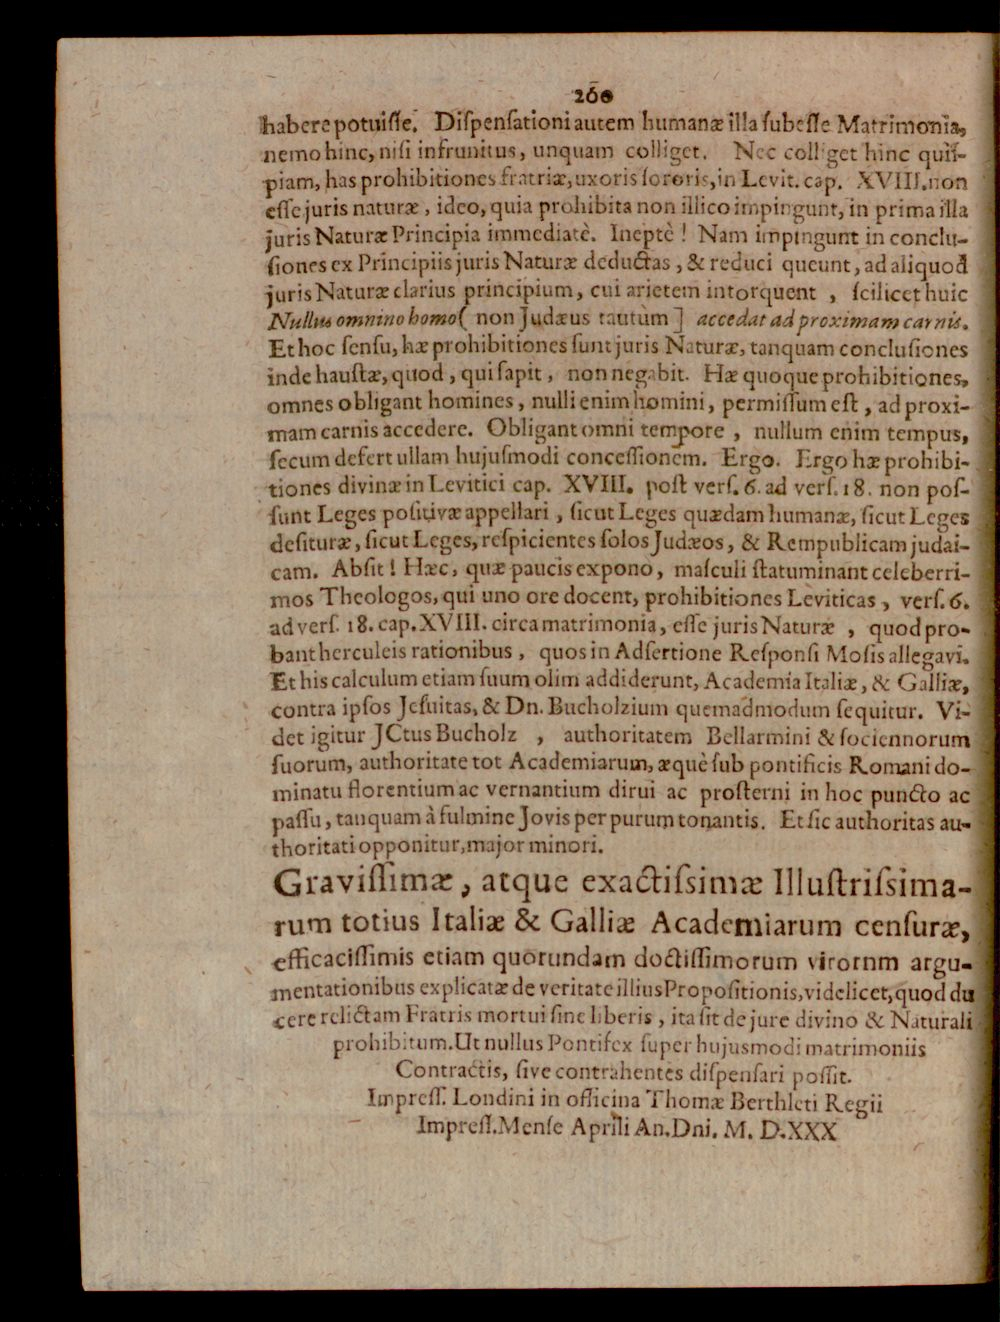 260
habere potuiſſe. Diſpenſationi autem humanæ illa ſubeſſe Matrimonia,
nemo hinc, niſi infrunitus, unquam colliget. Nec colliget hinc quiſ-
piam, has prohibitiones fratriæ, uxoris ſororis, in Levit. cap. XVIII. non
eſſe juris naturæ, ideo, quia prohibita non illico impingunt, in prima illa
juris Naturæ Principia immediatè. Ineptè! Nam impingunt in conclu-
ſiones ex Principiis juris Naturæ deductas, & reduci queunt, ad aliquod
juris Naturæ clarius principium, cui arietem intorquent, ſcilicet huic
Nullus omnino homo ( non Judæus tautùm ] accedat ad proximam carnis.
Et hoc ſenſu, hæ prohibitiones ſunt juris Naturæ, tanquam concluſiones
inde hauſtæ, quod, qui ſapit, non negabit. Hæ quoque prohibitiones,
omnes obligant homines, nulli enim homini, permiſſum eſt, ad proxi-
mam carnis accedere. Obligant omni tempore, nullum enim tempus,
ſecum defert ullam hujuſmodi conceſſionem. Ergo. Ergo hæ prohibi-
tiones divinæ in Levitici cap. XVIII. poſt verſ. 6. ad verſ. 18. non poſ-
ſunt Leges poſitivæ appellari, ſicut Leges quædam humanæ, ſicut Leges
deſituræ, ſicut Leges, reſpicientes ſolos Judæos, & Rempublicam judai-
cam. Abſit! Hæc, quæ paucis expono, maſculi ſtatuminant celeberri-
mos Theologos, qui uno ore docent, prohibitiones Leviticas, verſ. 6.
ad verſ. 18. cap. XVIII. circa matrimonia, eſſe juris Naturæ, quod pro-
bant herculeis rationibus, quos in Adſertione Reſponſi Moſis allegavi.
Et his calculum etiam ſuum olim addiderunt, Academia Italiæ, & Galliæ,
contra ipſos Jeſuitas, & Dn. Bucholzium quemadmodum ſequitur. Vi-
det igitur JCtus Bucholz, authoritatem Bellarmini & ſociennorum
ſuorum, authoritate tot Academiarum, æquè ſub pontificis Romani do-
minatu florentium ac vernantium dirui ac proſterni in hoc puncto ac
paſſu, tanquam à fulmine Jovis per purum tonantis. Et ſic authoritas au-
thoritati opponitur, major minori.
Graviſſimæ, atque exactiſsimæ Illuſtriſsima-
rum totius Italiæ & Galliæ Academiarum cenſuræ,
efficaciſſimis etiam quorundam doctiſſimorum virornm argu-
mentationibus explicatæ de veritate illius Propoſitionis, videlicet, quod du
cere relictam Fratris mortui ſine liberis, ita ſit de jure divino & Naturali
prohibitum. Ut nullus Pontifex ſuper hujusmodi matrimoniis
Contractis, ſive contrahentes diſpenſari poſſit.
Impreſſ. Londini in officina Thomæ Berthleti Regii
Impreſſ. Menſe Aprili An. Dni. M. D. XXX